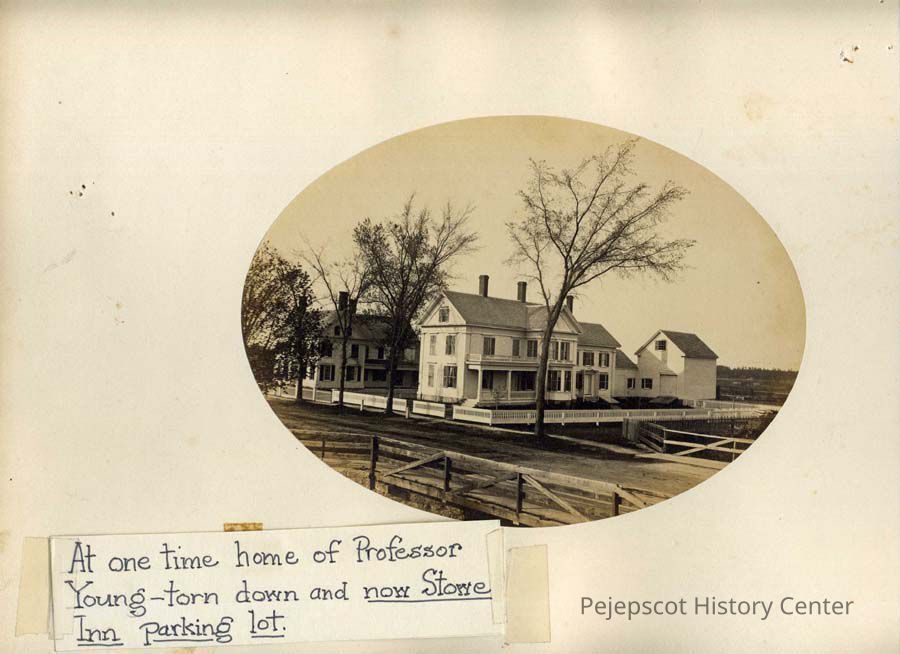 At one time home of Professor
Young-torn down and now Stowe
Inn parking lot.
Pejepscot History Center